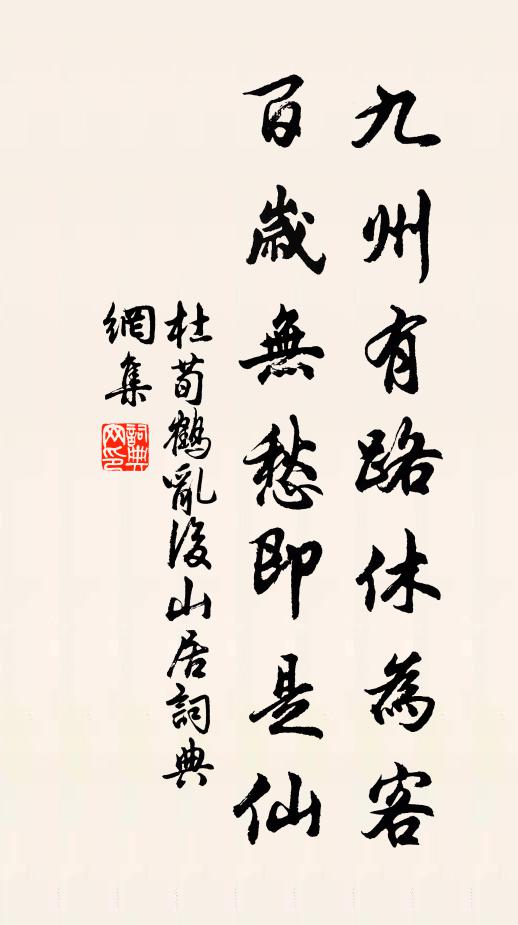 九州有路休為客
百歲無愁即是仙
杜荀鶴亂後山居詞典
網集
詞典網印